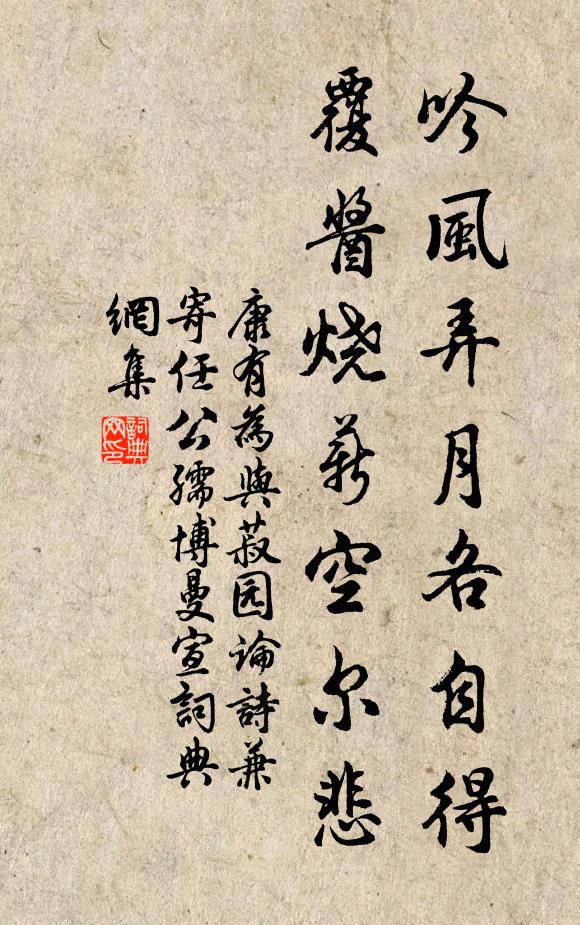 吟風弄月各自得
覆醬烧薪空尔悲
康有為與菽园論詩兼
寄任公孺博曼宣詞典
網集
詞典
网印